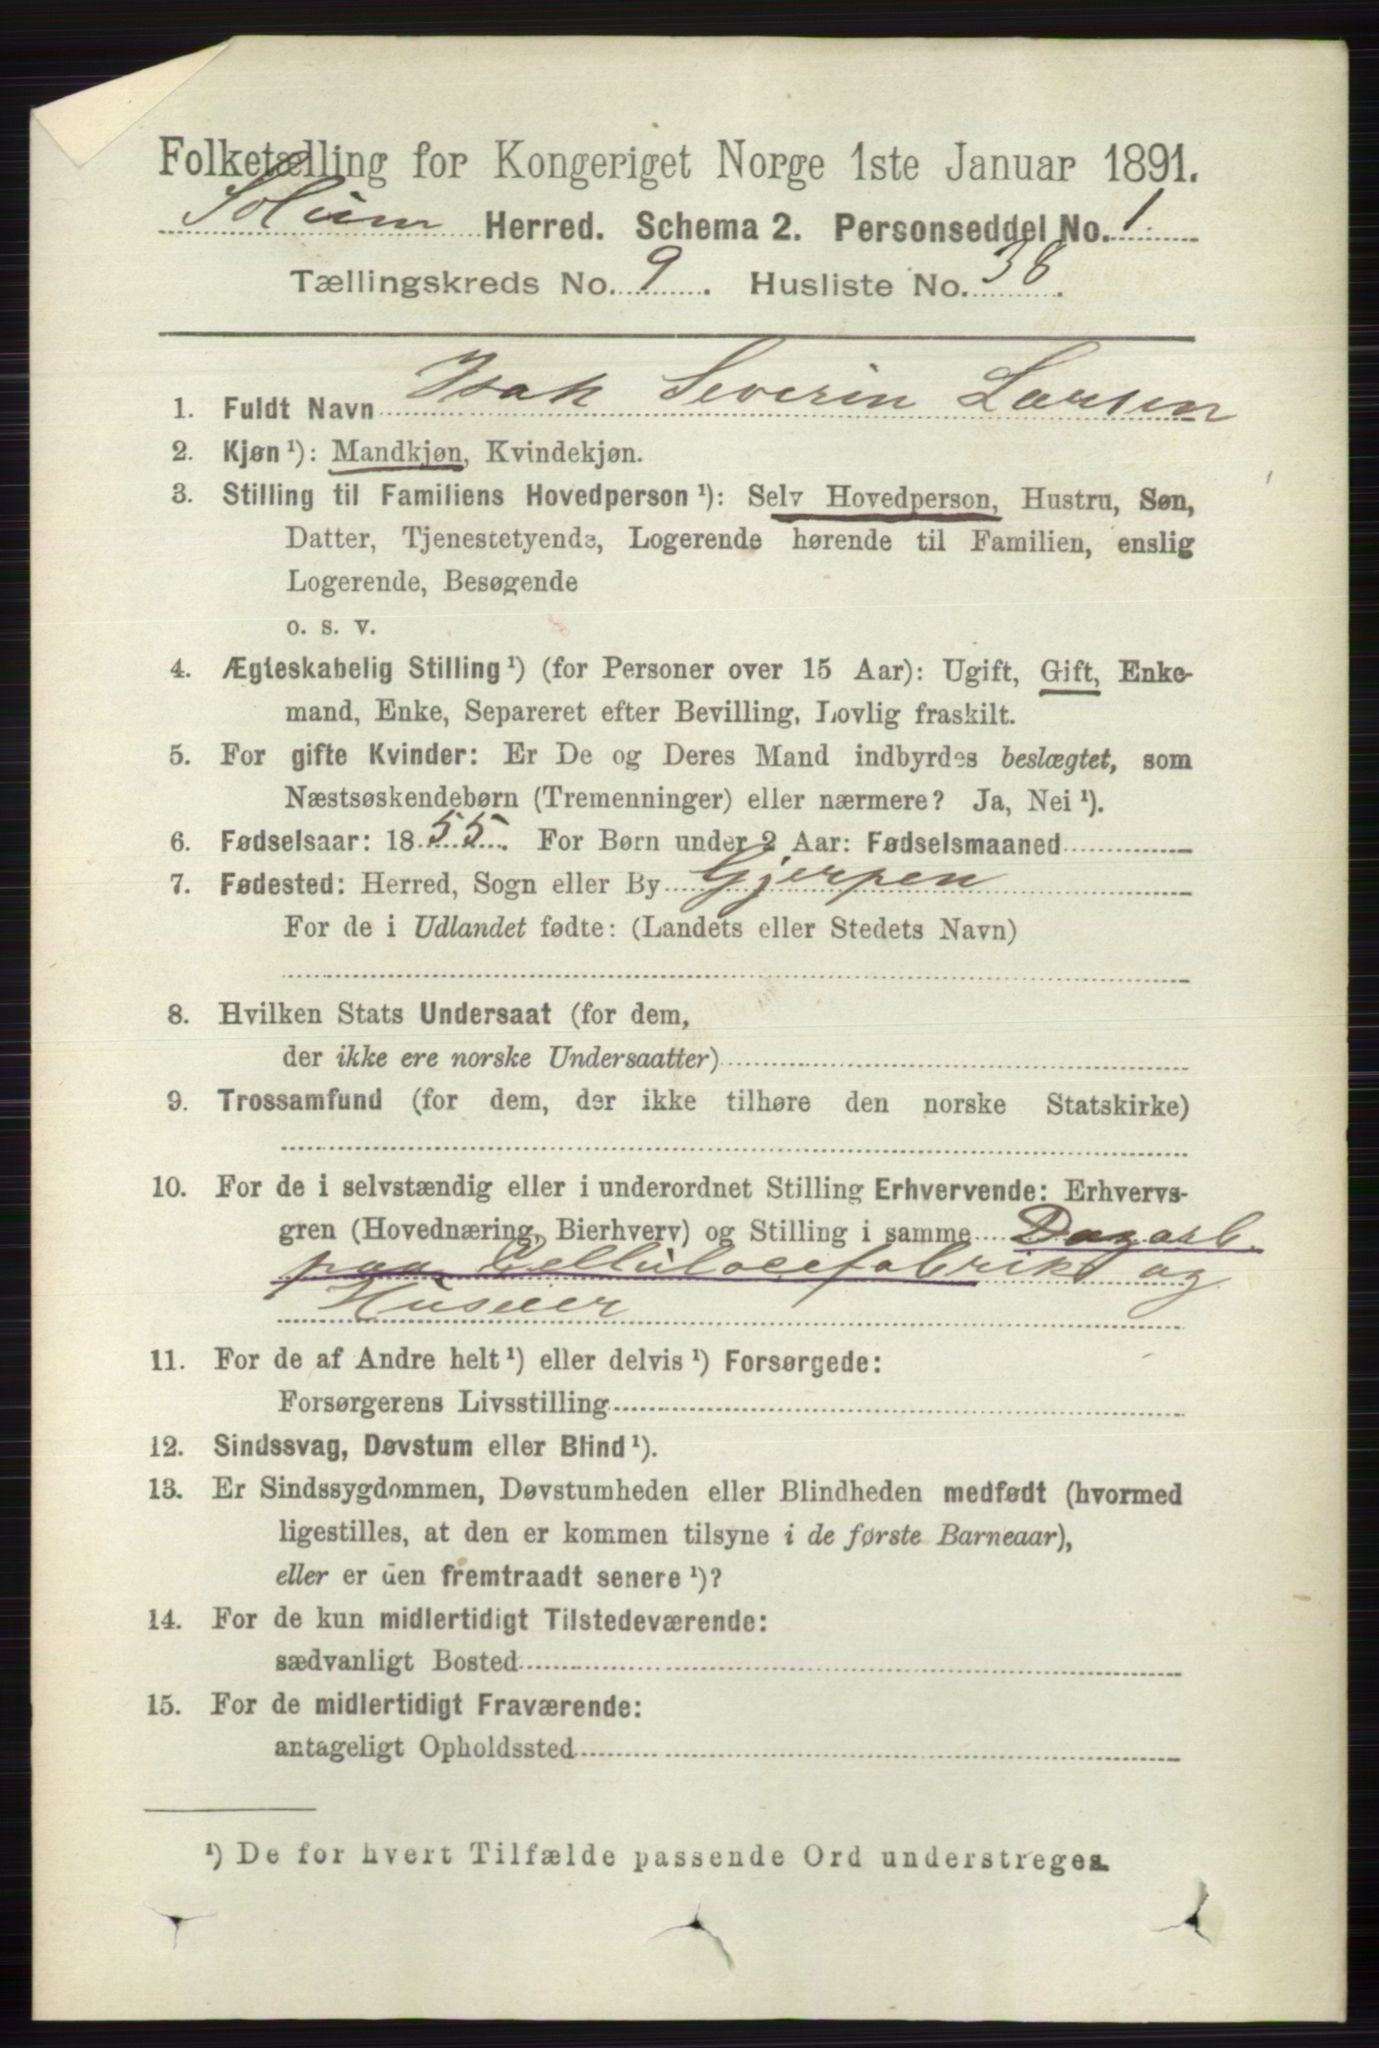 Folketælling for Kongeriget Norge 1ste Januar 1891.
Solum Herred. Schema 2. Personseddel No. 1
Tællingskreds No. 9. Husliste No. 38.
1. Fuldt Navn Isak Severin Larsen
2. Kjøn ¹): Mandkjøn, Kvindekjøn.
3. Stilling til Familiens Hovedperson ¹): Selv Hovedperson, Hustru, Søn,
Datter, Tjenestetyende, Logerende hørende til Familien, enslig
Logerende, Besøgende
o. s. v.
4. Ægteskabelig Stilling ¹) (for Personer over 15 Aar): Ugift, Gift, Enke-
mand, Enke, Separeret efter Bevilling, Lovlig fraskilt.
5. For gifte Kvinder: Er De og Deres Mand indbyrdes beslægtet, som
Næstsøskendebørn (Tremenninger) eller nærmere? Ja, Nei ¹).
6. Fødselsaar: 1855. For Børn under 2 Aar: Fødselsmaaned
7. Fødested: Herred, Sogn eller By Gjerpen
For de i Udlandet fødte: (Landets eller Stedets Navn)
8. Hvilken Stats Undersaat (for dem,
der ikke ere norske Undersaatter)
9. Trossamfund (for dem, der ikke tilhøre den norske Statskirke)
10. For de i selvstændig eller i underordnet Stilling Erhvervende: Erhvervs-
gren (Hovednæring, Bierhverv) og Stilling i samme Dagarb.
paa Cellulosefabrik og
Huseier
11. For de af Andre helt ¹) eller delvis ¹) Forsørgede:
Forsørgerens Livsstilling
12. Sindssvag, Døvstum eller Blind ¹).
13. Er Sindssygdommen, Døvstumheden eller Blindheden medfødt (hvormed
ligestilles, at den er kommen tilsyne i de første Barneaar),
eller er den fremtraadt senere ¹)?
14. For de kun midlertidigt Tilstedeværende:
sædvanligt Bosted
15. For de midlertidigt Fraværende:
antageligt Opholdssted
¹) De for hvert Tilfælde passende Ord understreges.